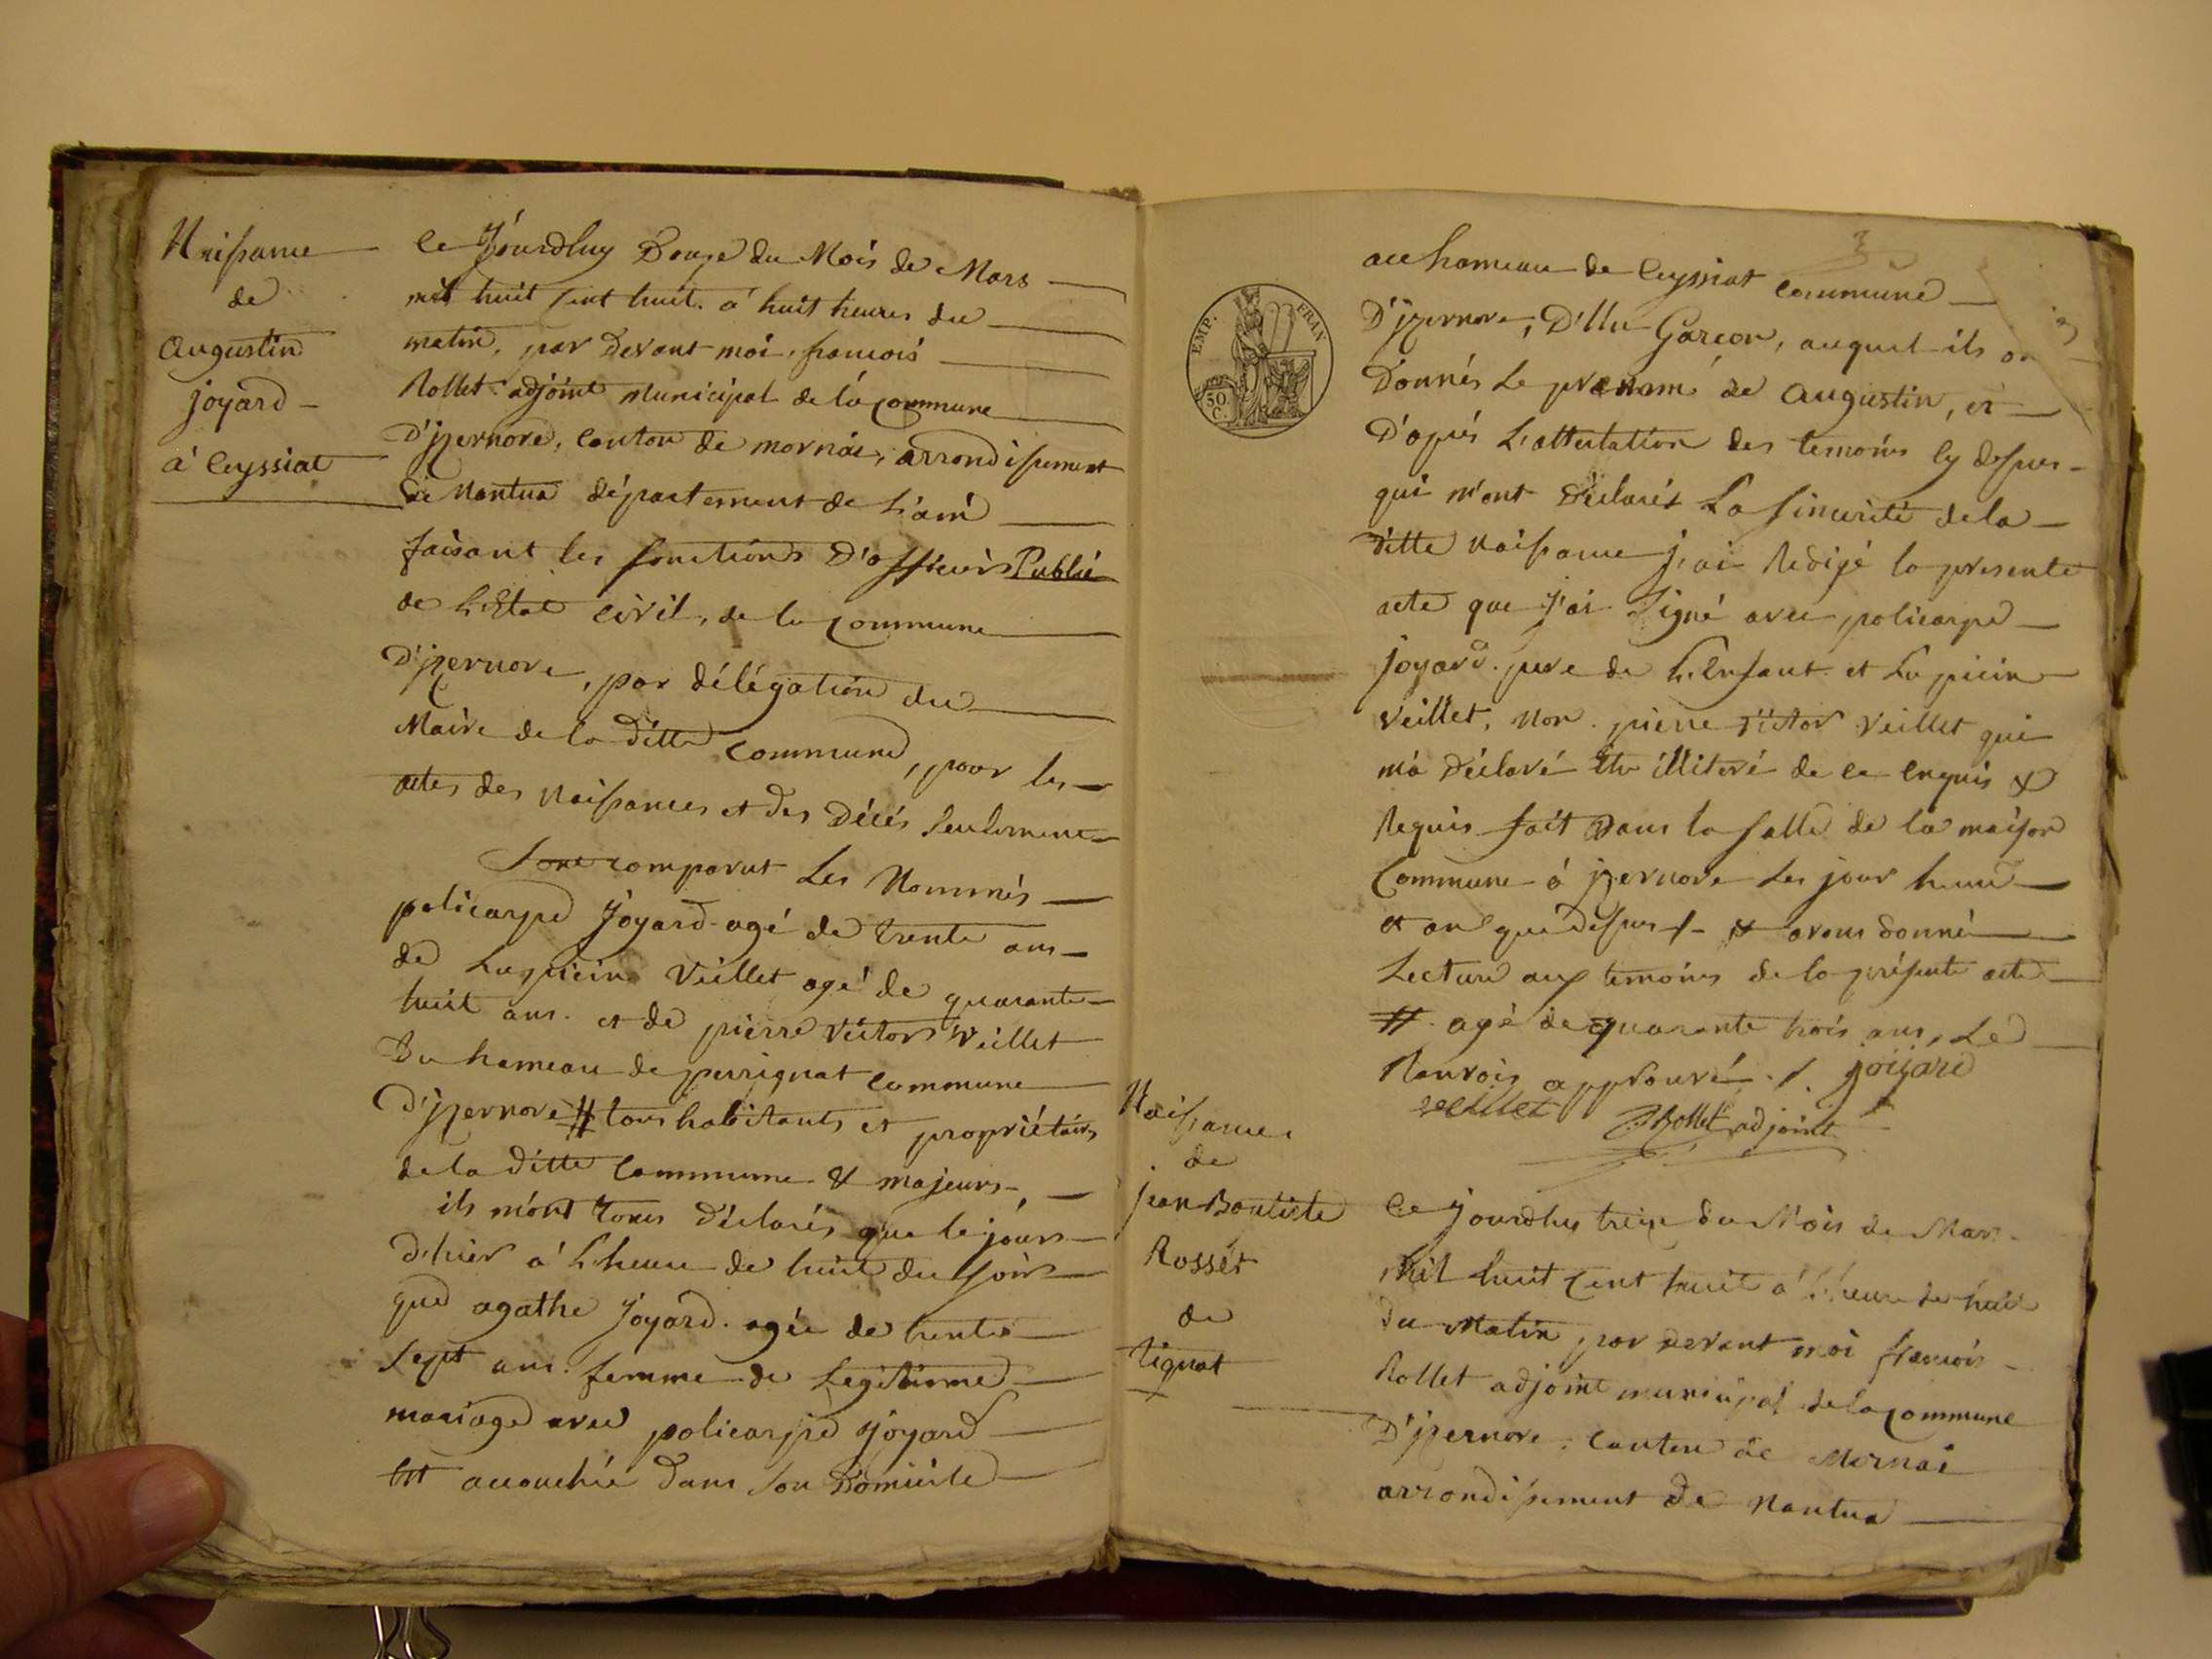 Naissance
de
Augustin
joyard
à Ceyssiat
Ce Jourdhuy Douze du Mois de Mars
mil huit cent huit. à huit heures du
matin, par devant moi, francois
Rollet adjoint Municipal de la Commune
D'jzernore, Canton de mornái, arrondissement
de Nantua département de L'ain
faisant les fonctions D'officiers Public
de L'Etat Civil, de la Commune
D'jzernore, par délégation du
Maire de la ditte Commune, pour les
actes des Naissances et des Décés seulement
Sont comparut Les Nommés
policarpe Joyard agé de trente ans
de Lupicin Veillet agé de quarante
huit ans. et de pierre Victor Veillet
Du hameau de perrignat Commune
D'jzernore # tous habitants et propriétaires
de la ditte Commune & majeurs,
ils m'ont tous déclarés que le jours
d'hier à L'heure de huit du soir
que agathe Joyard. agée de trente
sept ans. femme de Legitime
mariage avec policarpe Joyard
Est accouchée dans son Domicile
EMP. FRAN
50.
C.
3
au hameau de Ceyssiat Commune
D'jzernore, D'Un Garcon, auquel ils on
Donnés Le prénom de Augustin, et
D'après L'attestation des temoins Cy dessus
qui m'ont déclarés La Sincerité de la
ditte Naissance j'ai Redigé la presente
acte que j'ai Signé avec policarpe
joyard. pere de L'Enfant. et Lupicin
Veillet, Non. pierre Victor Veillet qui
m'a déclaré Etre illiteré de ce Enquis &
Requis fait Dans la salle de la maison
Commune à jzernore Les jour heure
et an que dessus /- & avons donné
Lecture aux temoins de la présente acte
# agé de quarante trois ans, Le
Ranvois approuvé ./. joijard
veillet
Rollet adjoint
Naissance
de
jean Baoutiste
Rosset
de
tignat
Ce jourdhuy treize du Mois de Mars
Mil huit Cent huit à L'heure de huit
du Matin, par devant moi francois
Rollet adjoint municipal de la Commune
D'jzernore, Canton de Mornai
arrondissement de Nantua